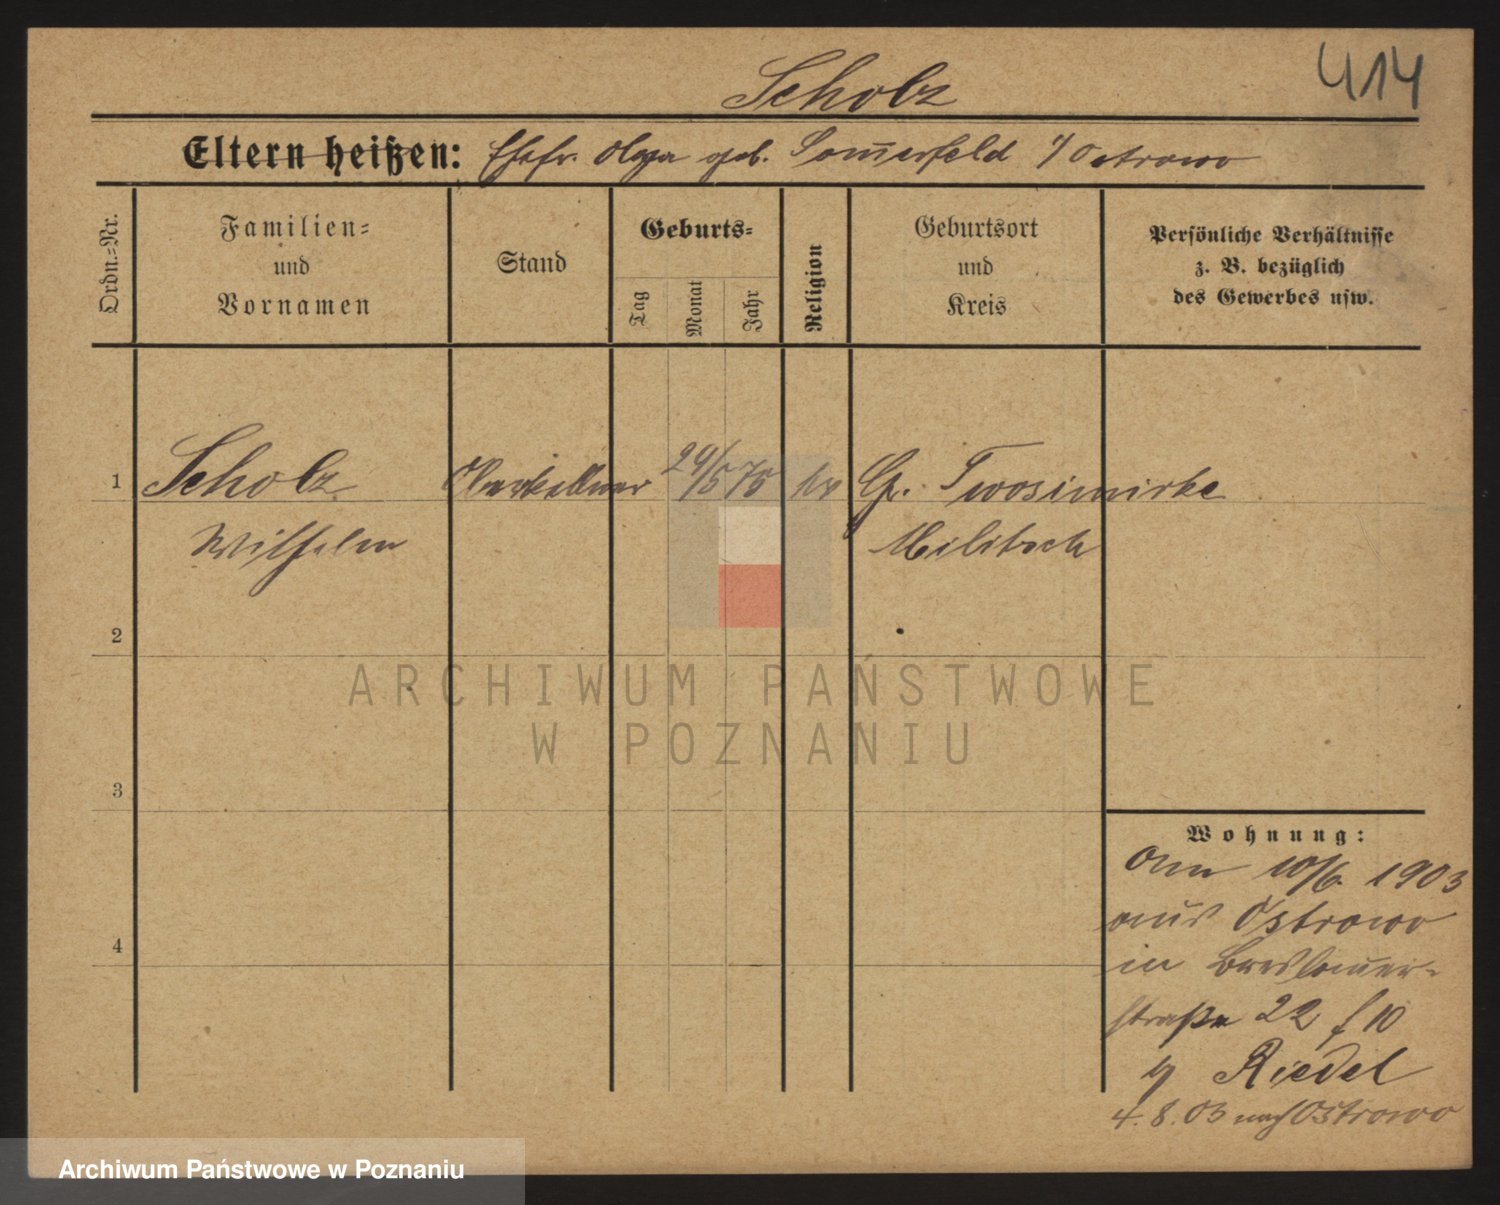 414
Scholz
Eltern heißen: Ehefr. Olga geb. Som̄erfeld i/Ostrowo
Ordn.-Nr.
Familien-
und
Vornamen
Stand
Geburts-
Tag
Monat
Jahr
Religion
Geburtsort
und
Kreis
Persönliche Verhältnisse
z. B. bezüglich
des Gewerbes usw.
1 Scholz Oberkellner 29/5 75 Gr. Twosimirke
Wilhelm Militsch
2
ARCHIWUM PAŃSTWOWE
W POZNANIU
3
4
Wohnung:
Am 10/6. 1903
aus Ostrowo
in Breslauer-
straße 22 f 10
b/ Riedel
4.8.03 nach Ostrowo
Archiwum Państwowe w Poznaniu